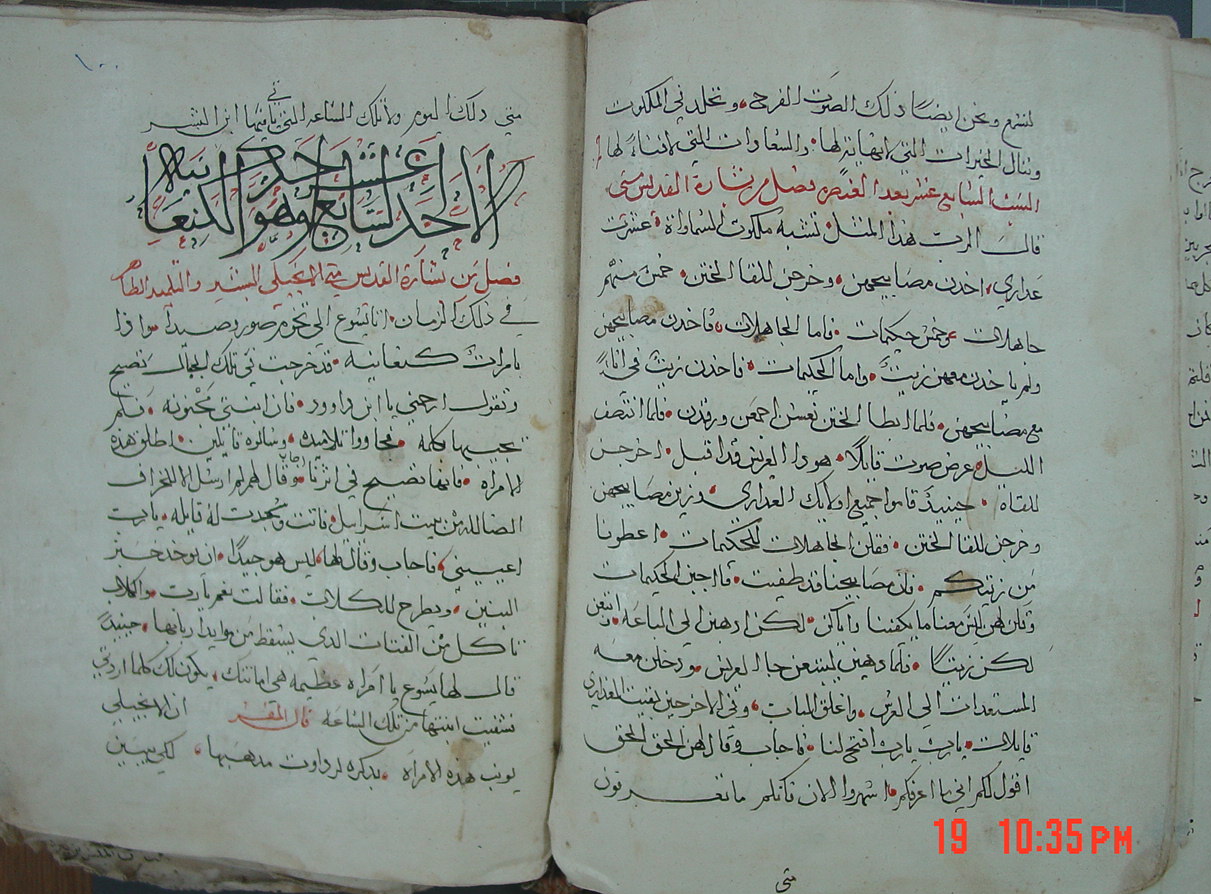 لنسمع ونحن ايضًا ذلك الصوت الفرح، ونخلد في الملكوت
وننال الخيرات التي لا نهاية لها، والسعادات التي لا فناء لها
السبت السابع عشر بعد العنصره فصل من بشارة القديس متى
قال الرب هذا المثل، تشبه ملكوت السماواة، عشرت
عذاري، اخدن مصابيحهن، وخرجن للقا الختن، خمس منهم
جاهلات، وخمس حكيمات، فاما الجاهلات، فاخدن مصابيحهن
ولم ياخدن معهن زيت، واما الحكيمات، فاخدن زيت في اناءٍ
مع مصابيحهن، فلما ابطا الختن نعسن اجمعن ورقدن، فلما انتصف
الليل، عرض صوت قايلًا، هودا العريس قد اقبل، اخرجن
للقاه، حينيذ قاموا جميع اولايك العداري، وزين مصابيحهن
وخرجن للقا الختن، فقلن الجاهلات للحكيمات، اعطونا
من زيتكم، فان مصابيحنا قد طفيت، فاجبن الحكيمات
وقلن لهن ليس معنا ما يكفينا واياكن، لكن ادهبن الي الباعه، وابتعن
لكن زيتًا، فلما دهبن ليبتعن جا العريس، ودخلن معه
المستعدات الي العرس، واغلق الباب، وفي الاخر جين بقيت العداري
قايلات، يارب يارب افتح لنا، فاجاب وقال لهن الحق الحق
اقول لكم اني ما اعرفكم، اسهروا الان فانكم ما تعرفون
متى
١٠٠
متي ذلك اليوم ولا تلك الساعه التي ياتي فيها ابن البشر
الاحد السابع عشر
وهو الكنعانيه
فصل من بشارة القديس متى الانجيلي البشير والتلميد الطاهر
في ذلك الزمان، اتا يسوع الي تخوم صور وصيدا، واذا
بامرات كنعانيه، قد خرجت من تلك الجبال تصيح
وتقول ارحمني يا ابن داوود، فان ابنتي مجنونه، فلم
يجيبها كلمه، فجاووا تلاميده، وسالوه قايلين، اطلق هذه
الامراه، فانها تصيح في اثرنا، فاجاب وقال لهم لم ارسل الا للخراف
الضاله من بيت اسراييل، فاتت وسجدت له قايله، يارب
اعينني، فاجاب وقال لها، ليس هو جيدًا، ان يوخد خبز
البنين، ويطرح للكلاب، فقالت نعم يارب، والكلاب
تاكل من الفتات الذي يسقط من موايد اربابها، حينيدٍ
قال لها يسوع يا امراه عظيمه هي امانتك، يكون لك كلما اردتي
فشفيت ابنتها من تلك الساعه قال المفسر ان الانجيلي
هذه الامراه، بذكره لرداوت مدهبها، لكي يبين
19 10:35PM